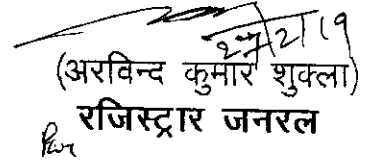 (अरविन्द कुमार शुक्ला)
रजिस्ट्रार जनरल